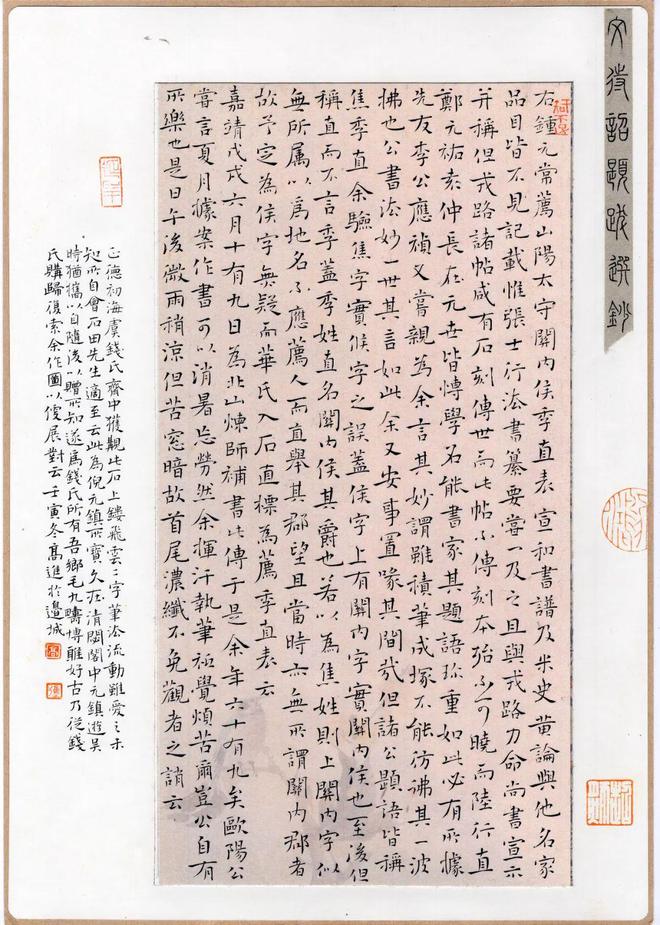 文待詔題跋選鈔
右鍾元常薦山陽太守關內侯季直表宣和書譜及米史黄論與他名家
品目皆不見記載惟張士行法書纂要嘗一及之且與戎路力命尚書宣示
并稱但戎路諸帖咸有石刻傳世而此帖不傳刻本殆不可曉而陸行直
鄭元祐袁仲長在元世皆博學名能書家其題語珎重如此必有所據
先友李公應禎又嘗親為余言其妙謂雖積筆成塚不能彷彿其一波
拂也公書法妙一世其言如此余又安事置喙其間哉但諸公題語皆稱
焦季直余驗焦字實侯字之誤蓋侯字上有關內字實關內侯也至後但
稱直而不言季蓋季姓直名關內侯其爵也若以為焦姓則上關內字似
無所属以爲地名不應薦人而直舉其郡望且當時亦無所謂關內郡者
故予定為侯字無疑而華氏入石直標為薦季直表云
嘉靖戊戌六月十有九日為北山煉師補書此傳于是余年六十有九矣歐陽公
嘗言夏月據案作書可以消暑忘勞然余揮汗執筆秪覺煩苦爾豈公自有
所樂也是日午後微雨稍涼但苦窓暗故首尾濃纖不免觀者之誚云
正德初海虞錢氏齋中獲觀此石上鏤飛雲二字筆法流動雖愛之未
知所自會石田先生適至云此為倪元鎮所寶久在清閟閣中元鎮遊吴
時猶攜以自隨後以贈所知遂爲錢氏所有吾鄉毛九疇博雅好古乃從錢
氏購歸復索余作圖以便展對云壬寅冬高進於邉城